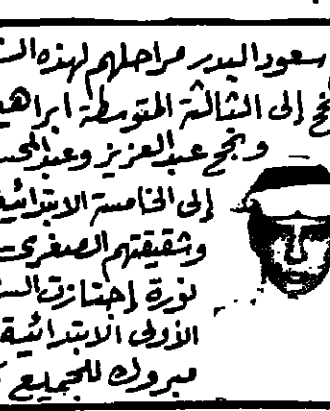 سعود البدر مراحلهم لهذه
إلى الثالثة المتوسطة ابراهيم
و نجح عبدالعزيز وعبدالمحسن
إلى الخامسة الابتدائية
وشقيقتهم الصغرى
نورة إجتازت السنة
الأولى الابتدائية
مبروك للجميع